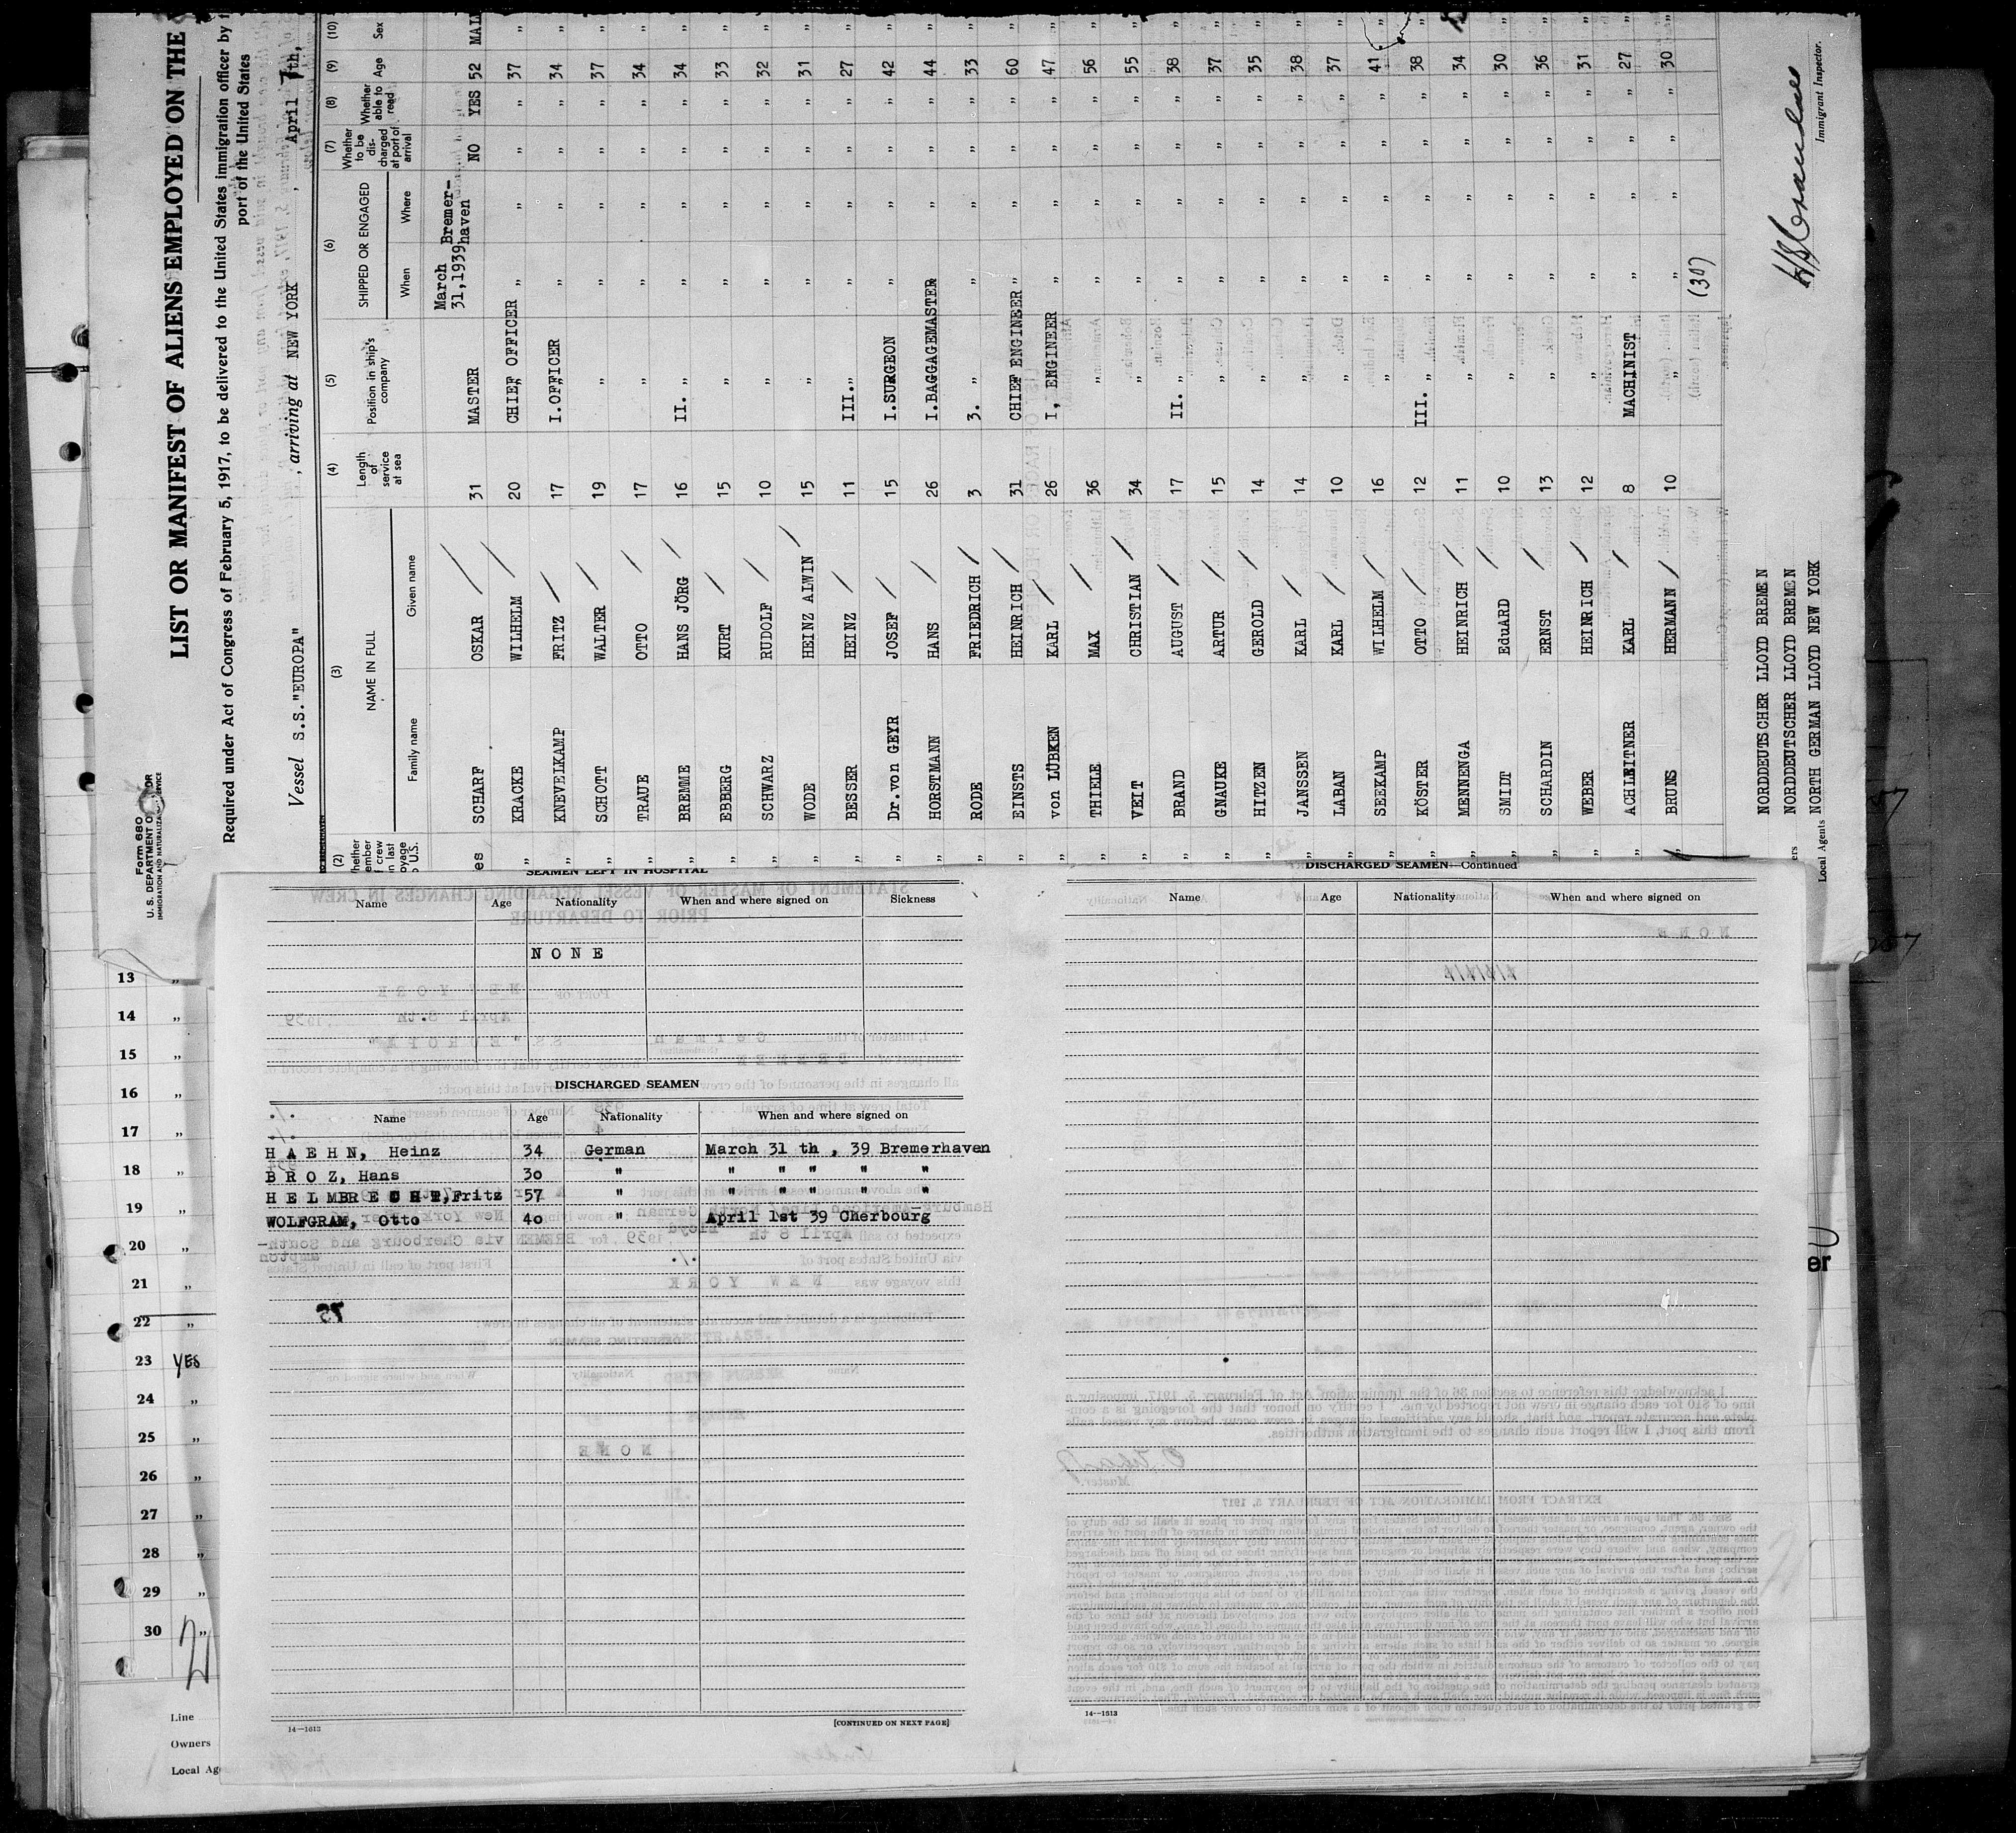 Form 680
U. S. DEPARTMENT OF LABOR
IMMIGRATION AND NATURALIZATION SERVICE
LIST OR MANIFEST OF ALIENS EMPLOYED ON THE
Required under Act of Congress of February 5, 1917, to be delivered to the United States immigration officer by
port of the United States
Vessel S.S."EUROPA" , arriving at NEW YORK , April 7th,
(2) (3) (4) (5) (6) (7) (8) (9) (10)
NAME IN FULL Length of service at sea Position in ship's company SHIPPED OR ENGAGED Whether to be discharged at port of arrival Whether able to read Age Sex
Family name Given name When Where
es SCHARF OSKAR 31 MASTER March 31,1939 Bremerhaven NO YES 52 MAL
" KRACKE WILHELM 20 CHIEF OFFICER " " " " 37 "
" KNEVELKAMP FRITZ 17 I.OFFICER " " " " 34 "
" SCHOTT WALTER 19 " " " " " 37 "
" TRAUE OTTO 17 " " " " " 34 "
" BREMME HANS JÖRG 16 II. " " " " " 34 "
" EBBERG KURT 15 " " " " " 33 "
" SCHWARZ RUDOLF 10 " " " " " 32 "
" WODE HEINZ ALWIN 15 " " " " " 31 "
" BESSER HEINZ 11 III." " " " " 27 "
" Dr.von GEYR JOSEF 15 I.SURGEON " " " " 42 "
" HORSTMANN HANS 26 I.BAGGAGEMASTER " " " " 44 "
" RODE FRIEDRICH 3 3. " " " " " 33 "
" EINSTS HEINRICH 31 CHIEF ENGINEER " " " " 60 "
" von LÜBKEN KARL 26 I, ENGINEER " " " " 47 "
" THIELE MAX 36 " " " " " 56 "
" VEIT CHRISTIAN 34 " " " " " 55 "
" BRAND AUGUST 17 II. " " " " " 38 "
" GNAUKE ARTUR 15 " " " " " 37 "
" HITZEN GEROLD 14 " " " " " 35 "
" JANSSEN KARL 14 " " " " " 38 "
" LABAN KARL 10 " " " " " 37 "
" SEEKAMP WILHELM 16 " " " " " 41 "
" KÖSTER OTTO 12 III. " " " " " 38 "
" MENNENGA HEINRICH 11 " " " " " 34 "
" SMIDT EduARD 10 " " " " " 30 "
" SCHARDIN ERNST 13 " " " " " 36 "
" WEBER HEINRICH 12 " " " " " 31 "
" ACHLEITNER KARL 8 MACHINIST " " " " 27 "
" BRUNS HERMANN 10 " " " " " 30 "
(30)
NORDDEUTSCHER LLOYD BREMEN
NORDDEUTSCHER LLOYD BREMEN
Local Agents NORTH GERMAN LLOYD NEW YORK
Immigrant Inspector.
SEAMEN LEFT IN HOSPITAL
Name Age Nationality When and where signed on Sickness
N O N E
DISCHARGED SEAMEN
Name Age Nationality When and where signed on
H A E H N, Heinz 34 German March 31 th , 39 Bremerhaven
B R O Z, Hans 30 " " " " " "
H E L M B R E C H T, Fritz 57 " " " " " "
WOLFGRAM, Otto 40 " April 1st 39 Cherbourg
./.
14—1613 [CONTINUED ON NEXT PAGE]
DISCHARGED SEAMEN—Continued
Name Age Nationality When and where signed on
14—1613
13 "
14 "
15 "
16 "
17 "
18 "
19 "
20 "
21 "
22 "
23 YES
24 "
25 "
26 "
27 "
28 "
29 "
30 "
Line
Owners
Local Ag
er